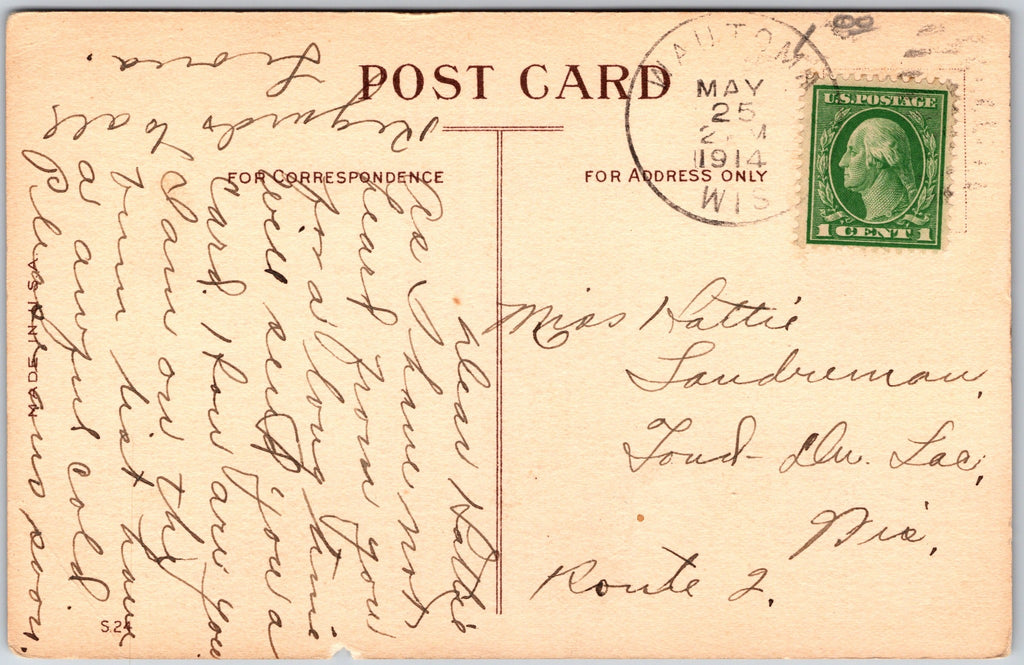 POST CARD
FOR CORRESPONDENCE
FOR ADDRESS ONLY
WAUTOMA
MAY
25
2 M
1914
WIS
U.S. POSTAGE
1 CENT 1
Miss Hattie
Landreman,
Fond Du. Lac,
Wis,
Route 2,
Dear Hattie
As I have not
heard from you
for a long time
will send you a
card. How are you
I am on the
bum but have
a awful cold
Please ans soon.
Regards to all
Leona.
S.24